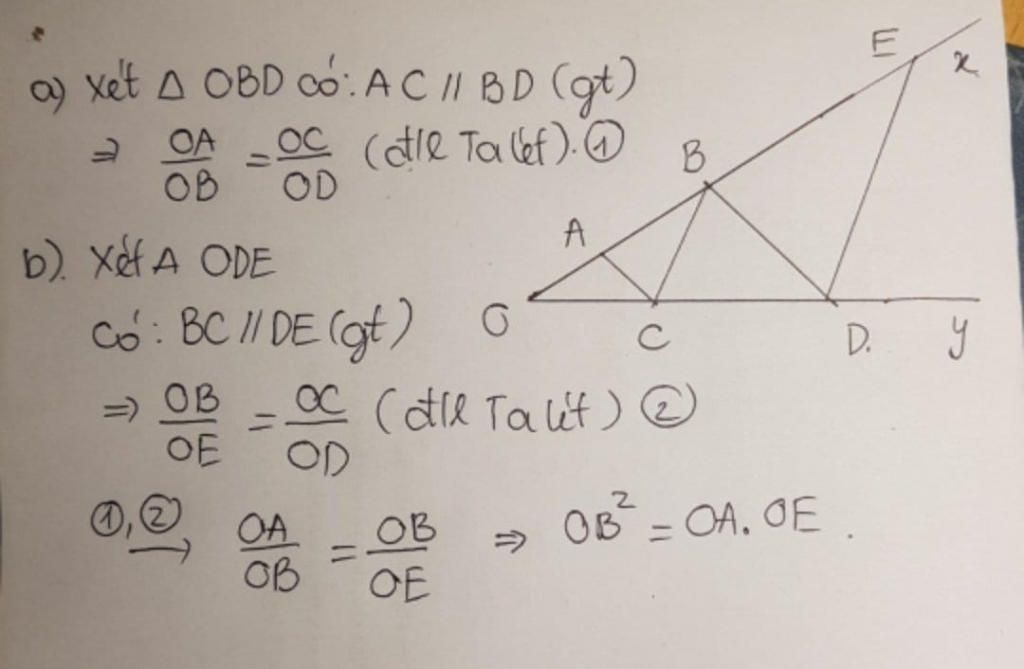 a) Xét Δ OBD có: AC // BD (gt)
⇒ OA/OB = OC/OD (đ/l Ta lét). ①
b). Xét Δ ODE
có: BC // DE (gt)
⇒ OB/OE = OC/OD (đ/l Ta lét) ②
①,② → OA/OB = OB/OE ⇒ OB² = OA. OE.
E
x
B
A
O
C
D.
y